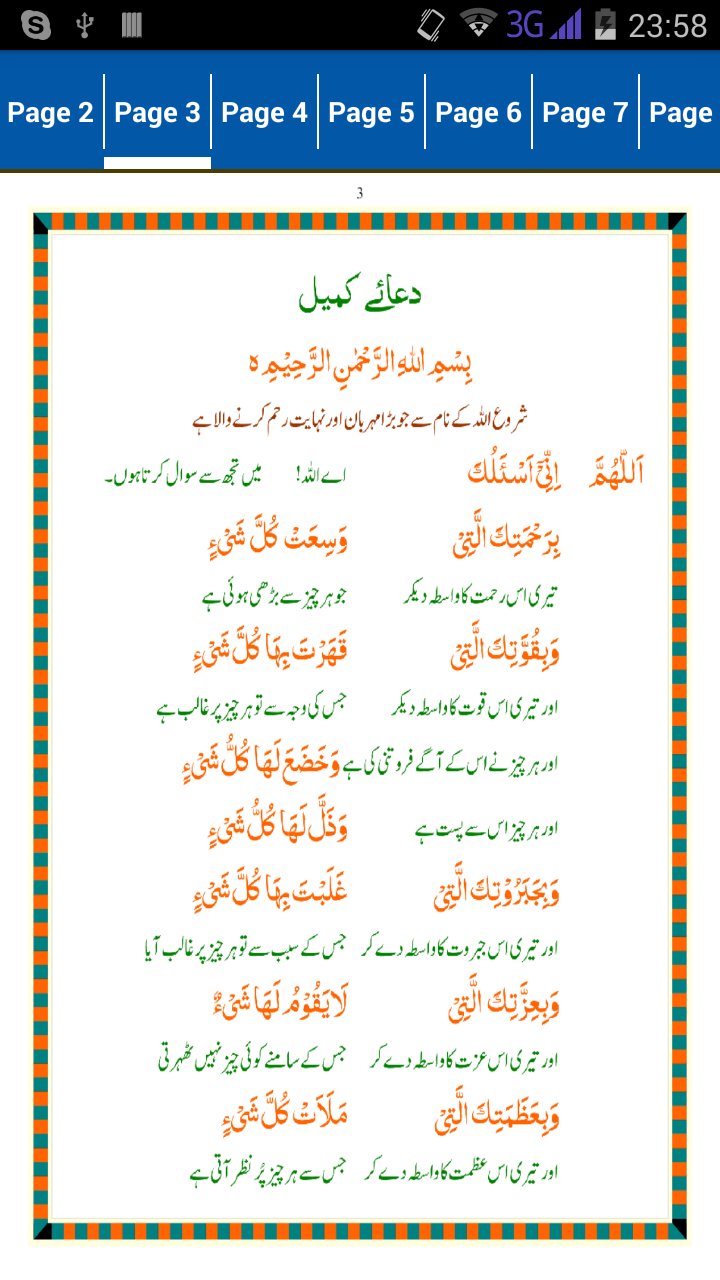 3G 23:58
Page 2 Page 3 Page 4 Page 5 Page 6 Page 7 Page
3
دعائے کمیل
بِسْمِ اللهِ الرَّحْمٰنِ الرَّحِيْمِ ہ
شروع اللہ کے نام سے جو بڑا مہربان اور نہایت رحم کرنے والا ہے
اَللّٰهُمَّ اِنِّیْٓ اَسْئَلُكَ اے اللہ! میں تجھ سے سوال کرتا ہوں۔
بِرَحْمَتِكَ الَّتِیْ وَسِعَتْ كُلَّ شَیْءٍ
تیری اس رحمت کا واسطہ دیکر جو ہر چیز سے بڑھی ہوئی ہے
وَبِقُوَّتِكَ الَّتِیْ قَهَرْتَ بِهَا كُلَّ شَیْءٍ
اور تیری اس قوت کا واسطہ دیکر جس کی وجہ سے تو ہر چیز پر غالب ہے
اور ہر چیز نے اس کے آگے فروتنی کی ہے وَخَضَعَ لَهَا كُلُّ شَیْءٍ
اور ہر چیز اس سے پست ہے وَذَلَّ لَهَا كُلُّ شَیْءٍ
وَبِجَبَرُوْتِكَ الَّتِیْ غَلَبْتَ بِهَا كُلَّ شَیْءٍ
اور تیری اس جبروت کا واسطہ دے کر جس کے سبب سے تو ہر چیز پر غالب آیا
وَبِعِزَّتِكَ الَّتِیْ لَا يَقُوْمُ لَهَا شَیْءٌ
اور تیری اس عزت کا واسطہ دے کر جس کے سامنے کوئی چیز نہیں ٹھہرتی
وَبِعَظَمَتِكَ الَّتِیْ مَلَاَتْ كُلَّ شَیْءٍ
اور تیری اس عظمت کا واسطہ دے کر جس سے ہر چیز پُر نظر آتی ہے